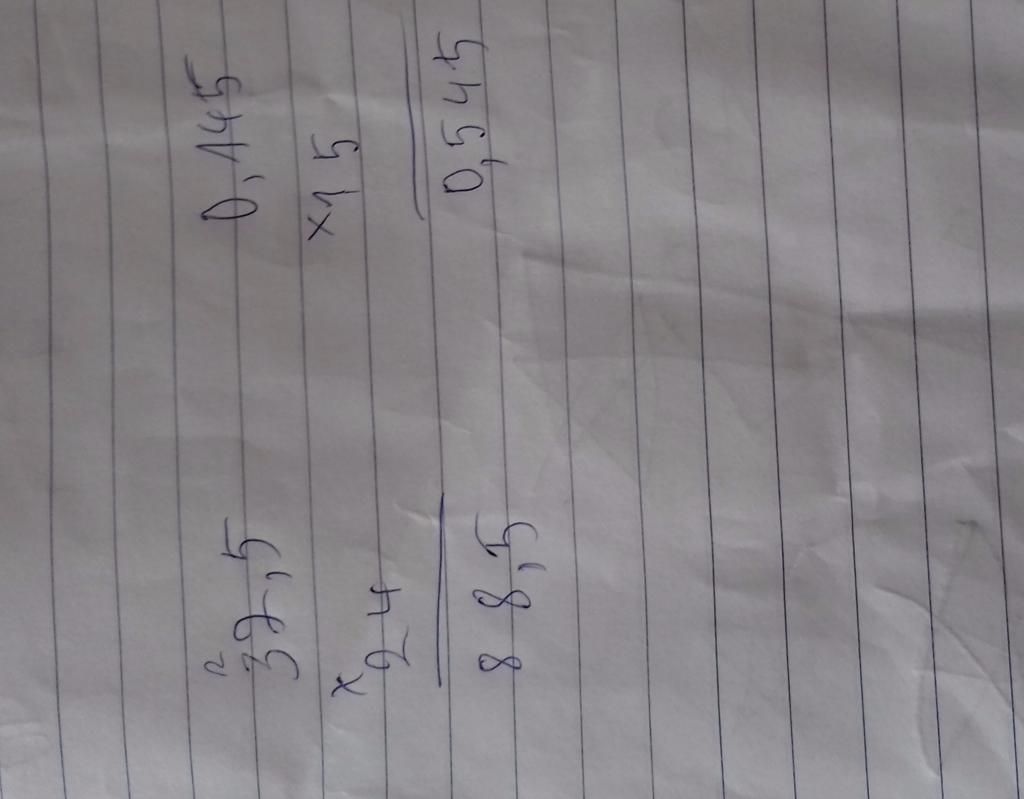 2
32,5
x 24
88,5
0,145
x15
0,545